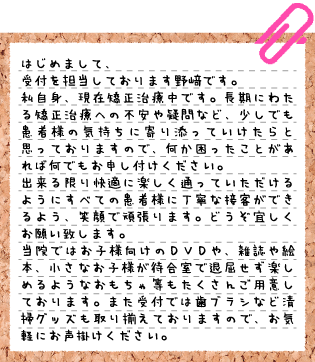 はじめまして、
受付を担当しております野﨑です。
私自身、現在矯正治療中です。長期にわた
る矯正治療への不安や疑問など、少しでも
患者様の気持ちに寄り添っていけたらと
思っておりますので、何か困ったことがあ
れば何でもお申し付けください。
出来る限り快適に楽しく通っていただける
ようにすべての患者様に丁寧な接客ができ
るよう、笑顔で頑張ります。どうぞ宜しく
お願い致します。
当院ではお子様向けのＤＶＤや、雑誌や絵
本、小さなお子様が待合室で退屈せず楽し
めるようなおもちゃ等もたくさんご用意し
ております。また受付では歯ブラシなど清
掃グッズも取り揃えておりますので、お気
軽にお声掛けください。